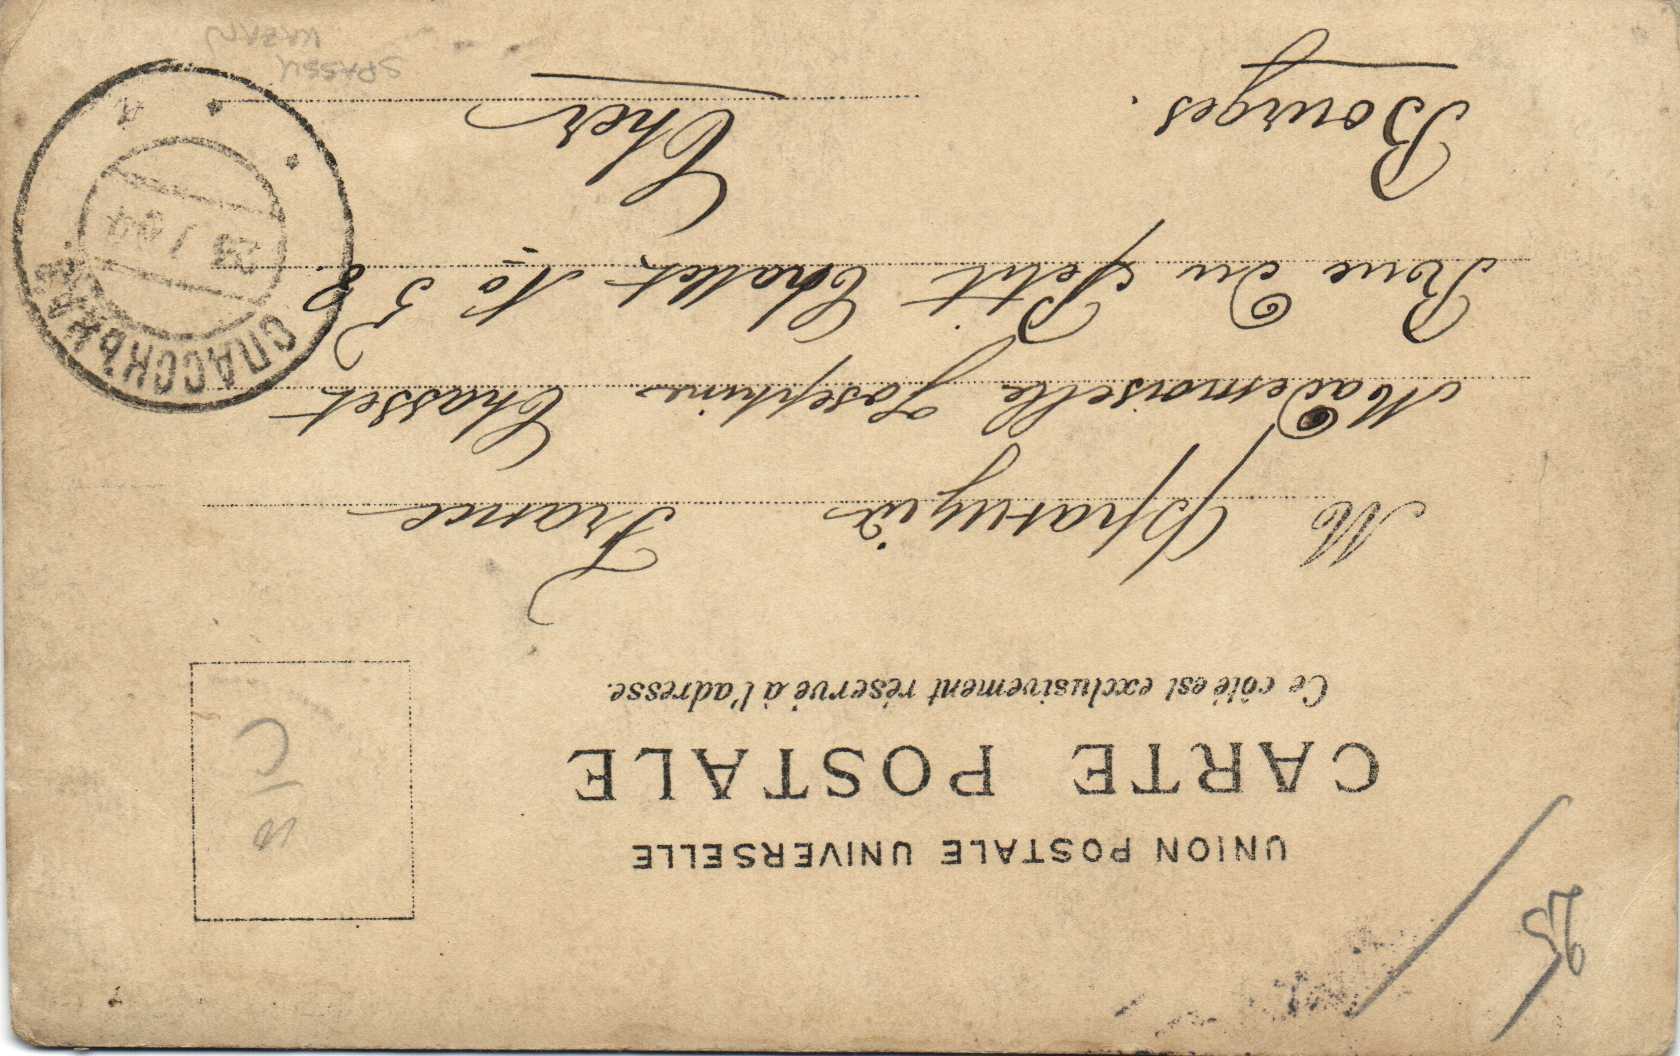 UNION POSTALE UNIVERSELLE
CARTE POSTALE
Ce côté est exclusivement réservé à l'adresse.
M France
Mademoiselle Josephine Chasset
Rue du Petit Challet No 38
Bourges. Cher
СПАССКЪ КАЗ.
23 7 04
SPASSK
KAZAN